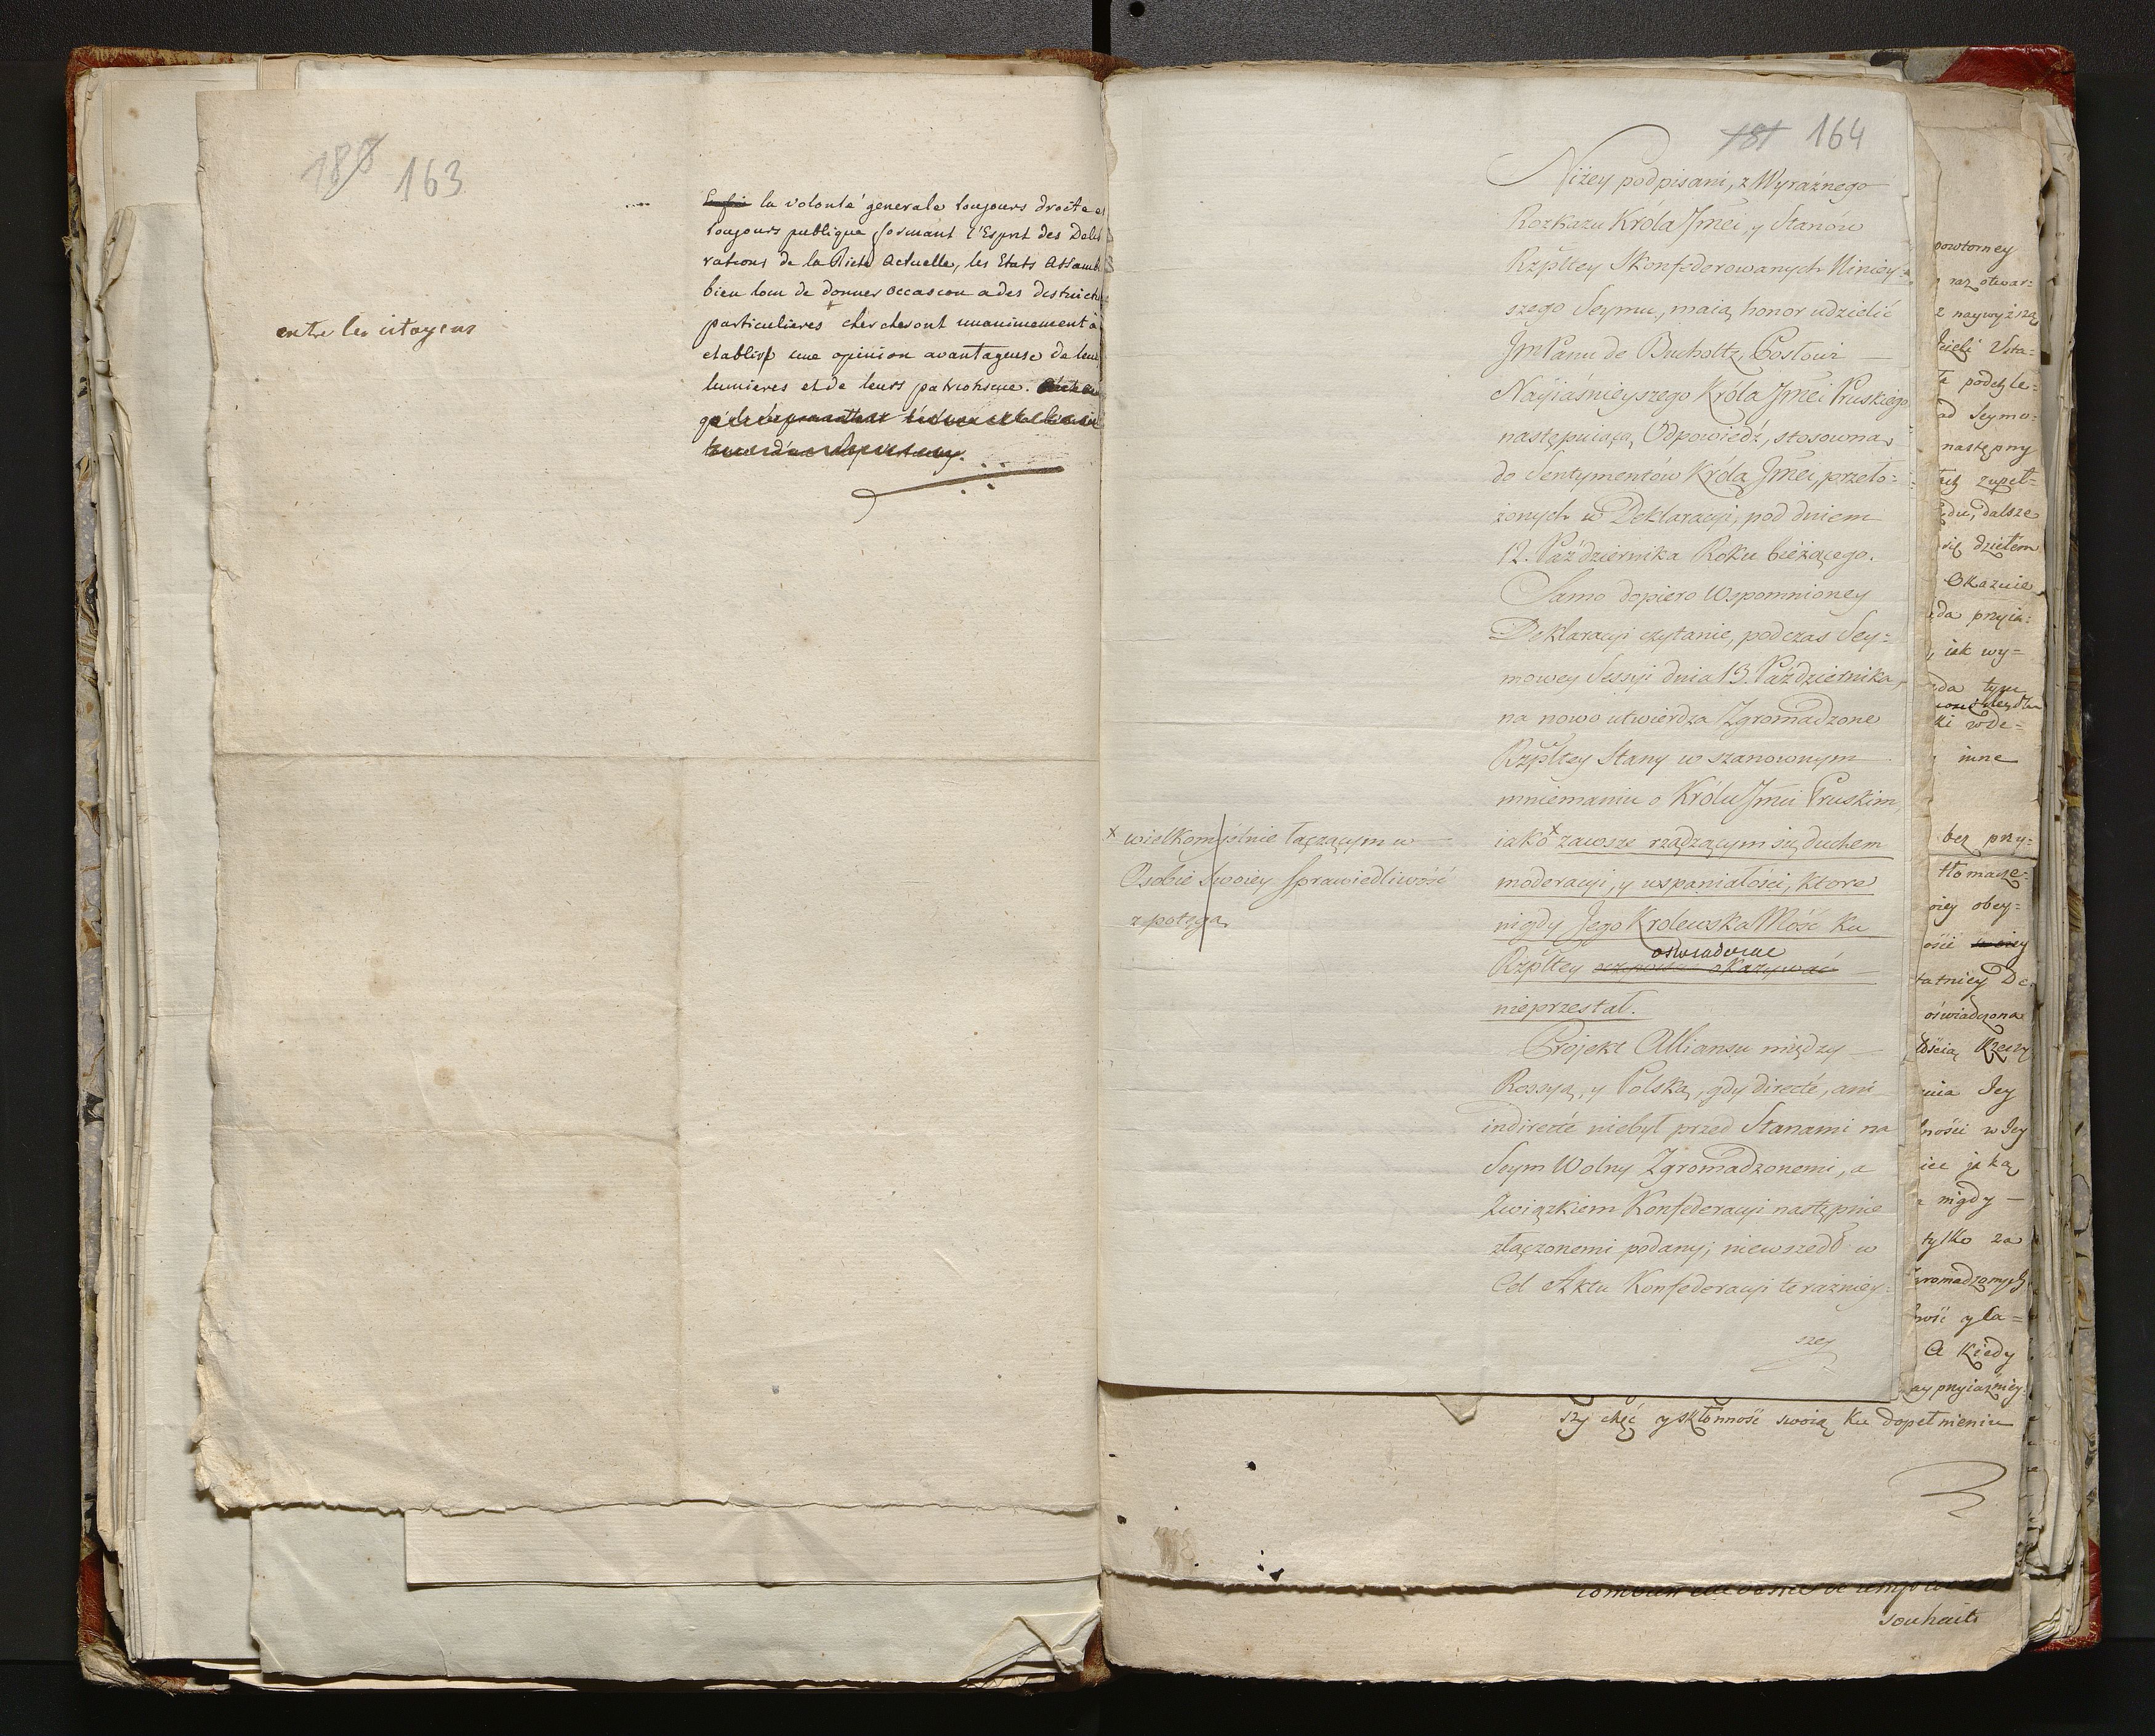 188 163
Enfin la volonté generale toujours droite et
toujours publique formant l'Esprit des Delib
rations de la Diete Actuelle, les Etats Assamb
bien loin de donner occasion a des distinct
particulieres + chercheront unanimement à
entre les citoyens
etablir une opinion avantageuse de leurs
lumieres et de leurs patriotisme.
181 164
Niżey podpisani, z Wyraźnego
Rozkazu Króla Jmći, y Stanów
Rzpltey Skonfederowanych Niniey-
szego Seymu, maią honor udzielić
JmPanu de Bucholtz, Posłowi —
Nayiaśnieyszego Króla Jmći Pruskiego
następuiącą Odpowiedź, stosowną
do Sentymentów Króla Jmći, przeło=
żonych w Deklaracyi, pod dniem
12. Października Roku bieżącego.
Samo dopiero Wspomnioney
Deklaracyi czytanie, podczas Sey=
mowey Sessyi dnia 13. Października,
na nowo utwierdza Zgromadzone
Rzpltey Stany w szanownym
mniemaniu o Królu Jmći Pruskim,
x wielkomyślnie łączącym w —
Osobie Swoiey Sprawiedliwość
z potęgą
iako x zawsze rządzącym się duchem
moderacyi, y wspaniałości, ktore
nigdy Jego Krolewska Mość ku
oswiadczac
Rzpltey okazywać
nieprzestał.
Projekt Alliansu między —
Rossyą, y Polską, gdy directé, ani
indirecté niebył przed Stanami na
Seym Wolny Zgromadzonemi, a
Związkiem Konfederacyi następnie
złączonemi podany; niewszedł w
Cel Aktu Konfederacyi teraźniey=
szey
powtorney
raz otwar=
z naywyższą
Usta=
podchle=
ad Seymo=
następny
zupeł=
du, dalsze
się dziełem
Okazuie
da przyia=
, iak wy=
da tym
wde=
inne
bez przy=
tłomacze=
oiey obey=
ości swoiey
tatniey De
oświadczona
ścią Rzeczy
nia Jey
ności w Jey
iaką
nigdy —
tylko za
gromadzonych
ność y ła=
A kiedy
ay przyiaźniey=
szy chęć y skłonność swoią ku dopełnieniu
souhaits